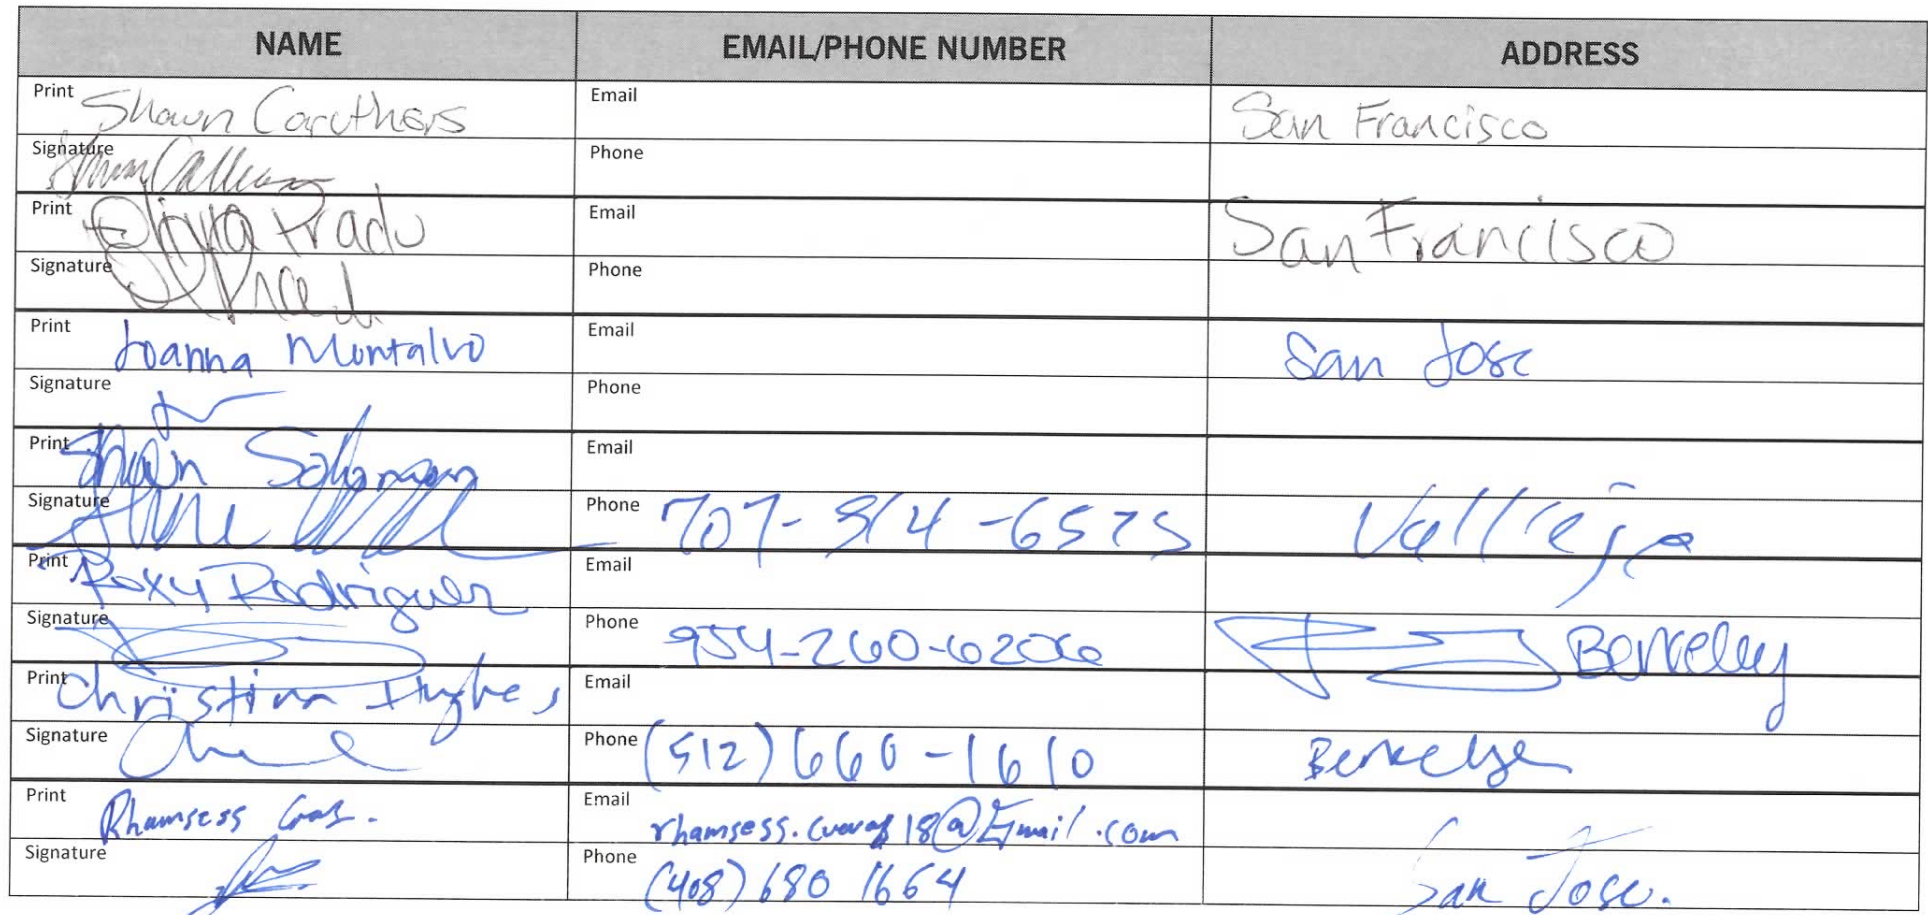 NAME EMAIL/PHONE NUMBER ADDRESS
Print Shawn Caruthers Email San Francisco
Signature Phone
Print Olivia Prado Email San Francisco
Signature Phone
Print Joanna Montalvo Email San Jose
Signature Phone
Print Shawn Solomon Email
Signature Phone 707-314-6575 Vallejo
Print Roxy Rodriguez Email
Signature Phone 954-260-6206 Berkeley
Print Christina Hughes Email
Signature Phone (512) 660-1610 Berkeley
Print Rhamsess Email rhamsess.cuevas18@gmail.com
Signature Phone (408) 680 1664 San Jose.